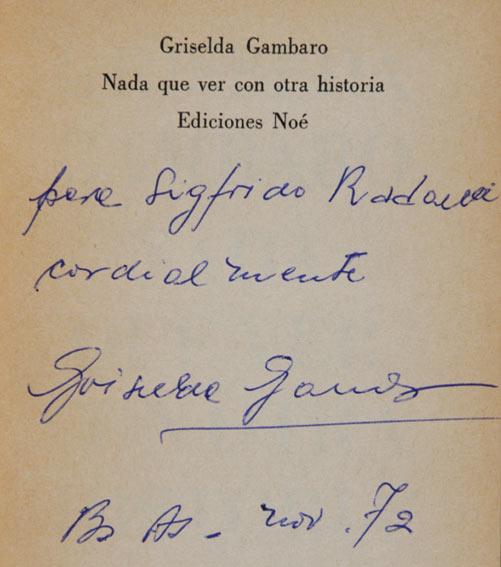 Griselda Gambaro
Nada que ver con otra historia
Ediciones Noé
para Sigfrido Radaelli
cordialmente
Griselda Gambaro
Bs As - nov. 72